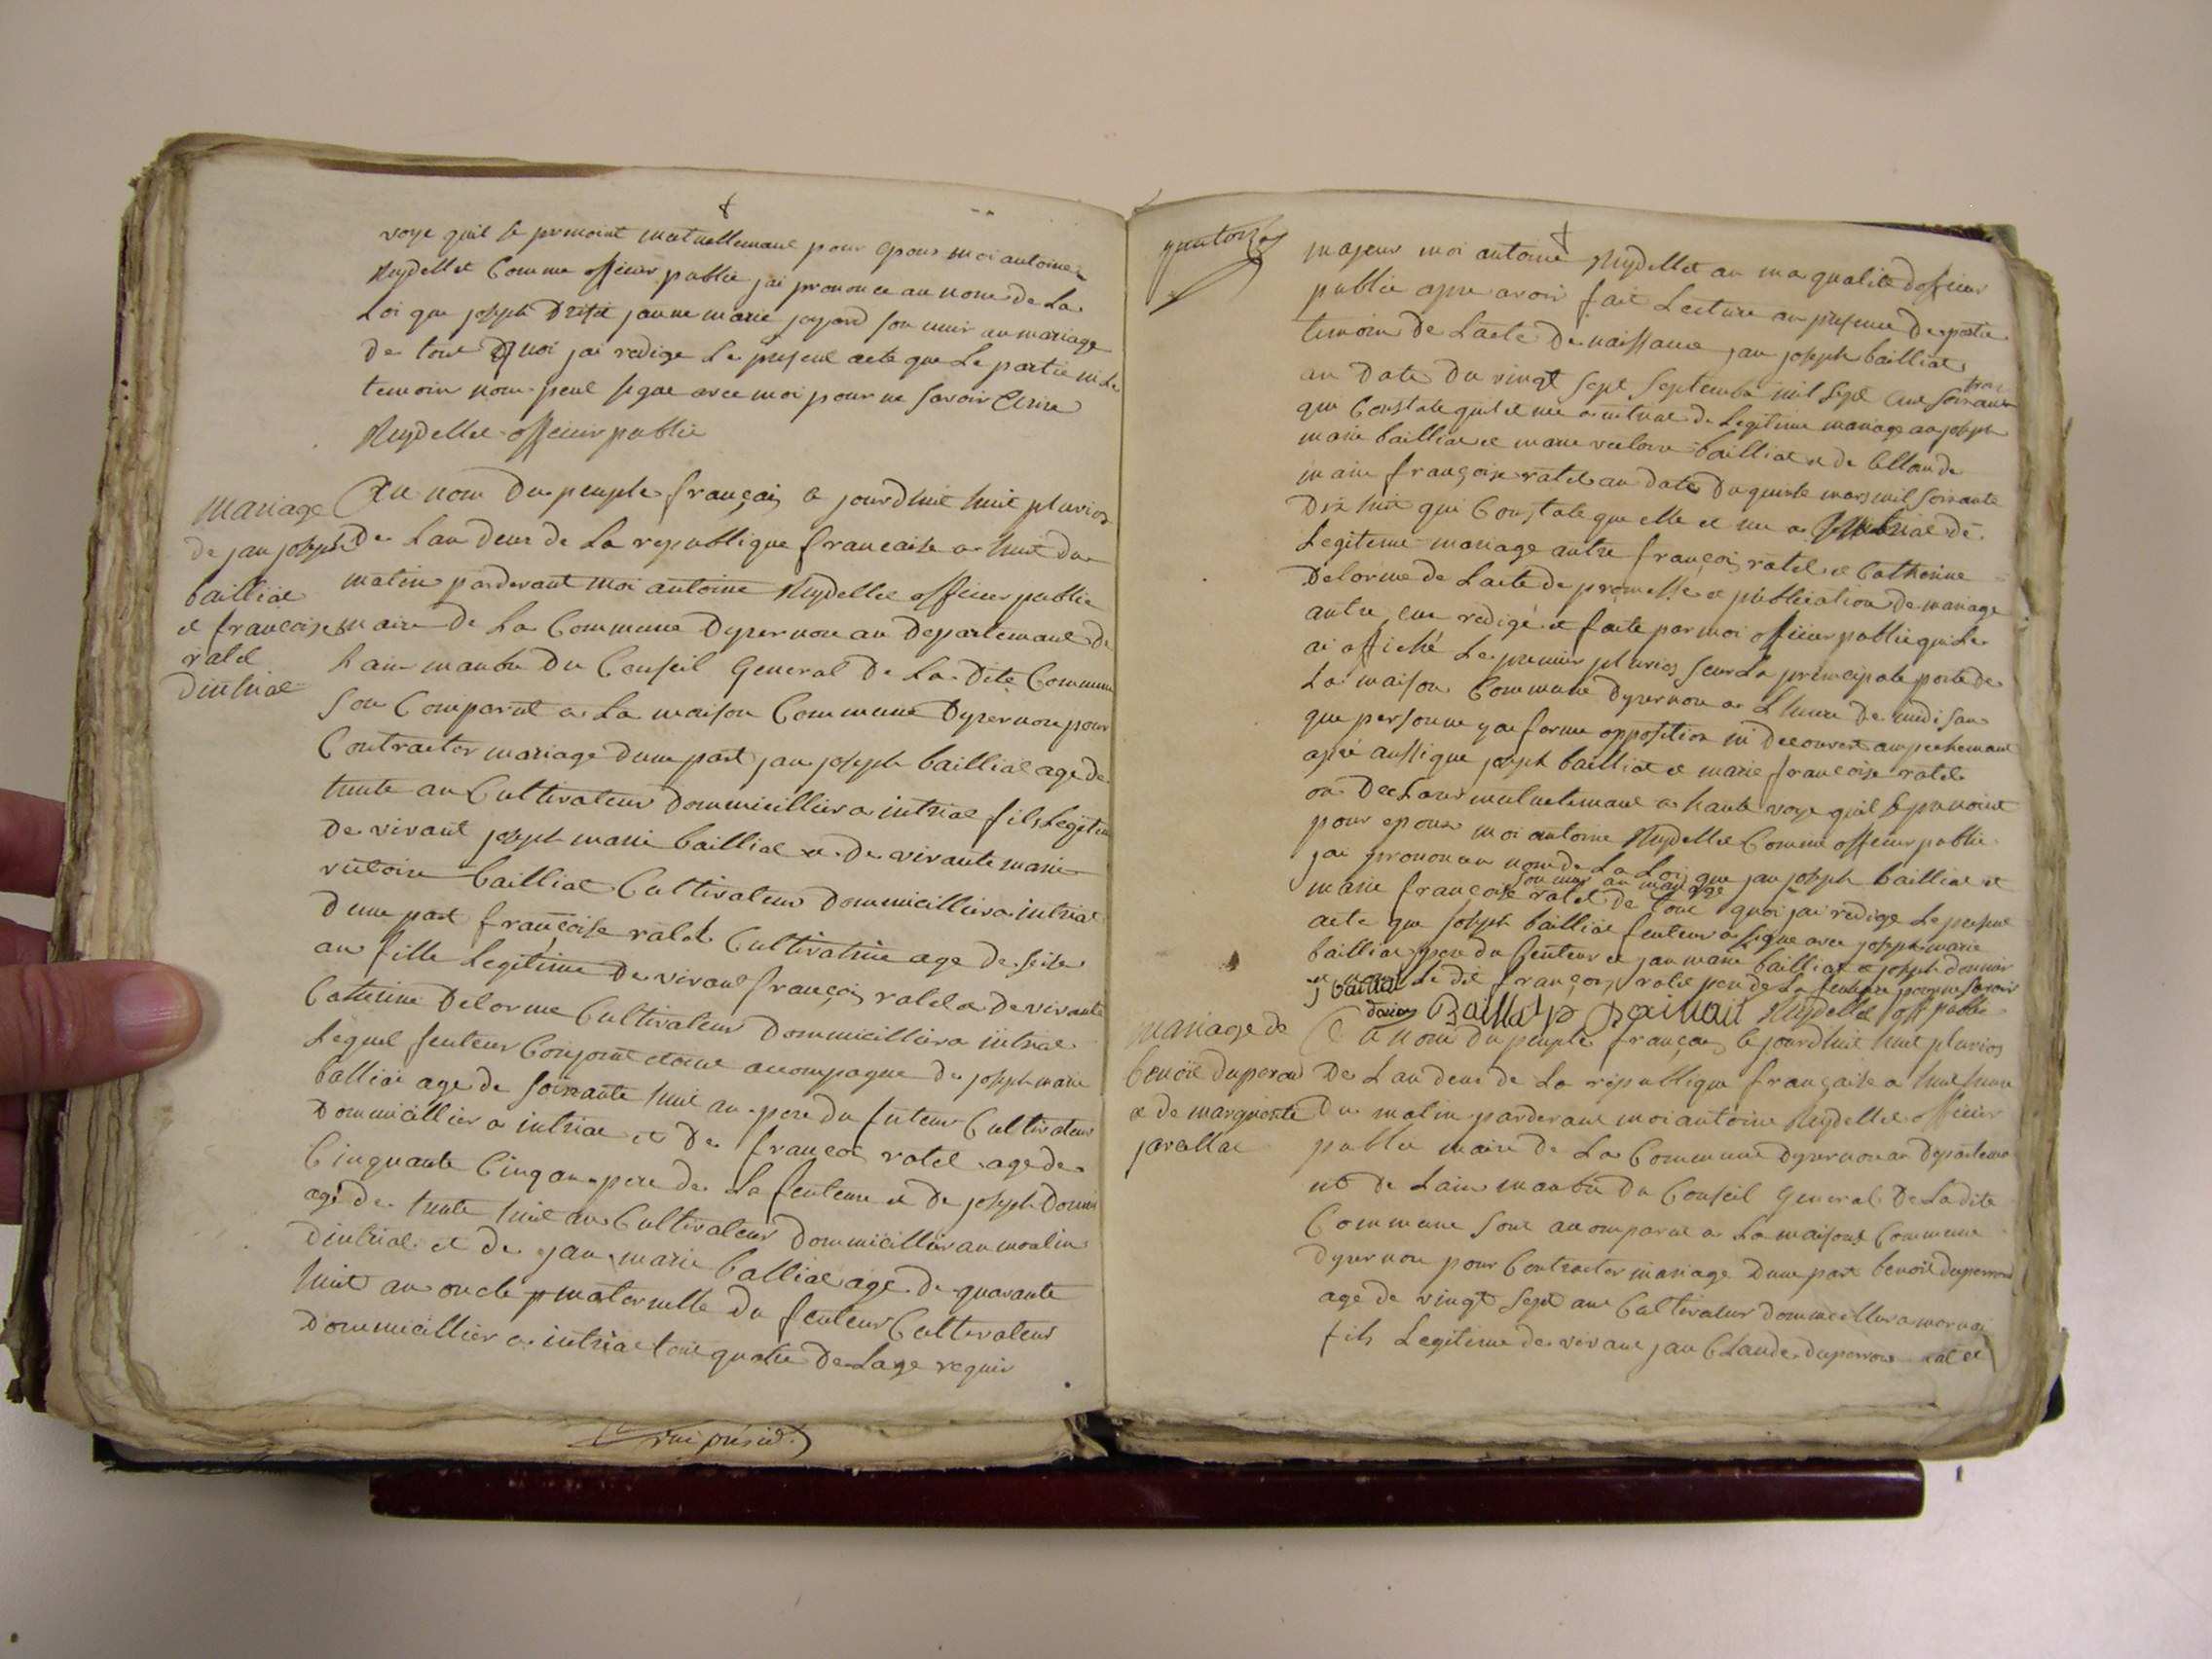 voye quil se prenoint mutuellemant pour epous moi antoine
Reydellet Comme officier public jai prononce au nom de La
Loi que joseph jeanne marie joyard son unis au mariage
de tout quoi jai redige Le present acte que Le partie ni Le
temoin nom peul signe avec moi pour ne savoir Ecrire
Reydellet officier public
mariage
de jan joseph
bailliat
et francoise
ratel
dintriat
Au nom Du peuple français a jourdhuit huit pluvios
De Lan deus de La republique francaise a huit du
matin pardevant moi antoine Reydellet officier public
maire De La Commune Dyzernore au Departemant de
Lain manbre Du Conseil General De La Dite Commune
son Comparut a La maison Commune Dyzernore pour
Contracter mariage dune part jan joseph bailliat age de
trente an Cultivateur Dommicillier a intriat fils Legitime
De vivant joseph marie bailliat et De vivante marie
victoire bailliat Cultivateur Dommicillier a intriat
Dune part françoise ratel Cultivatrice age De seise
an fille Legitime De vivant françois ratel et De vivante
Catherine Delorme Cultivateur Dommicillier a intriat
Lequel feuteur Conjoint etant acompagne De joseph marie
balliat age de soixante huit an pere du futeur Cultivateur
Dommicillier a intriat et De françois ratel age de
Cinquante Cinq an pere de La feuteure et De joseph
age de trente huit ans Cultivateur Dommicillier au moulin
Dintriat et de jan marie balliat age De quarante
huit an oncle maternelle Du feuteur Cultivateur
Dommicillier a intriat tout quatre De Lage requis
quatorze
majeur moi antoine Reydellet au ma qualité dofficier
public apre avoir fait Lecture an presence De partie
temoin De Lacte De naissance jan joseph bailliat
an Date Du vingt sept septembre mil sept cent soixante
trois
que Constate quil et nee a intriat de Legitime mariage au joseph
marie bailliat et marie victoire bailliat et de Celle de
marie françoise ratel an Date Du quinte mars mil soixante
Dix huit qui Constate quelle et nee a intriat de
Legiteme mariage autre françois ratel et Catherine
Delorme de Lacte de promesse et publication de mariage
autre eux redigé et faite par moi officier public qui Le
ai affiché Le premier pluvios seur La principale porte de
La maison Commune Dyzernore a Lheure De midi san
que personne y ai forme opposition ni Decouvert ampechemant
apré aussi que joseph bailliat et marie françoise ratel
on Declare mutuelemant a haute voye quil se prenoint
pour epous moi antoine Reydellet Comme officier public
jai prononce au nom de La Loi que jan joseph bailliat et
son unis au mariage
marie françoise ratel de tout quoi jai redige Le present
acte que joseph bailliat feuteur a signe avec joseph marie
bailliat pere du feuteur et jan marie bailliat et joseph
et non Le dit françois ratel pere de La feuteure pour ne savoir
j baillat Baillat Reydellet off public
mariage de
benoit duperou
et de marguerite
javallat
Au nom Du peuple françois a jourdhuit huit pluvios
De Lan deus de La république française a huit heure
Du matin pardevant moi antoine Reydellet officier
public maire De La Commune Dyzernore au Departema
nt De Lain manbre Du Conseil General De Ladite
Commune sont au comparut a La maison Commune
Dyzernore pour Contracter mariage Dune part benoit duperrou
age de vingt sept ans Cultivateur Dommicillier a mornai
fils Legitime de vivant jan Claude duperrou